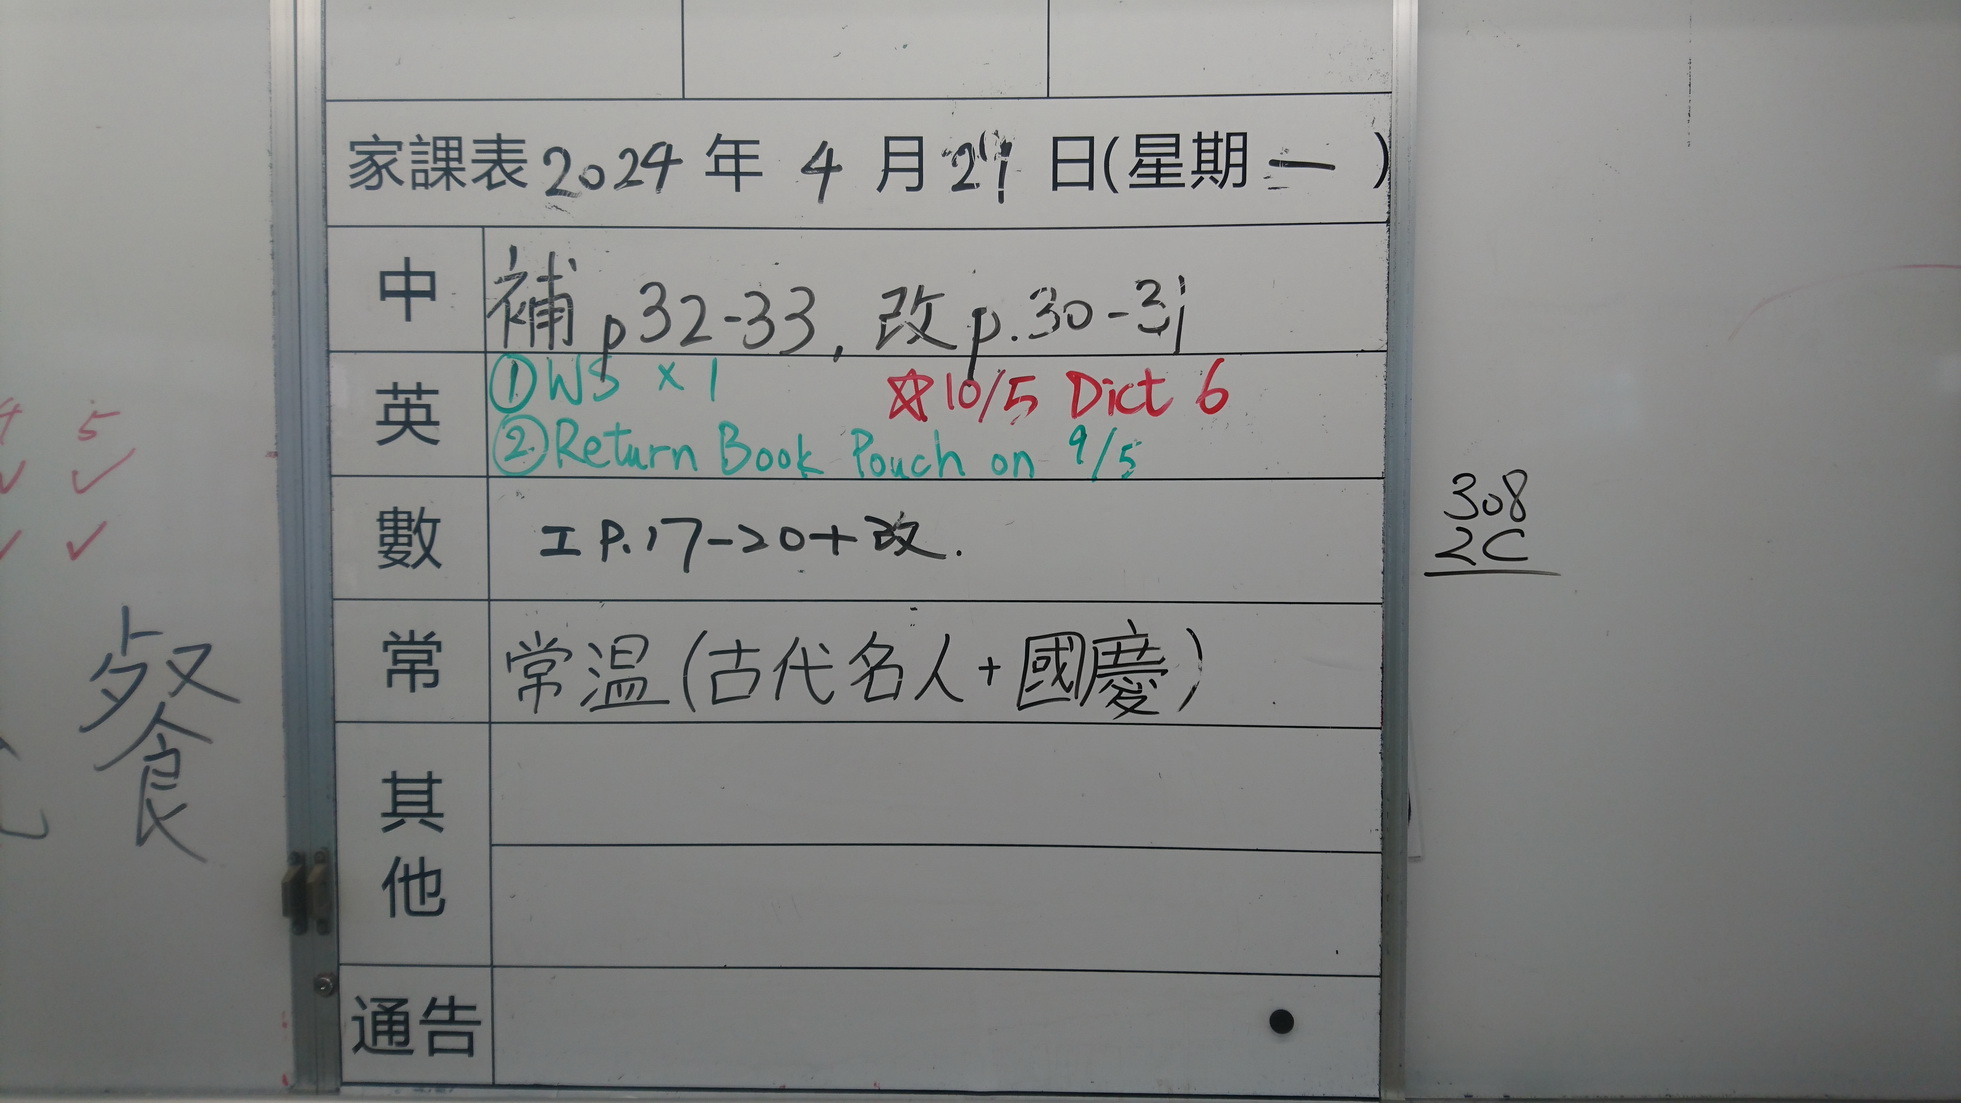 家課表 2024 年 4 月 29 日(星期一)
中 補 p32-33, 改 p.30-31
英 ①WS × 1 ☆10/5 Dict 6
②Return Book Pouch on 9/5
數 工 P.17-20+改.
常 常温(古代名人+國慶)
其他
通告
5
✓
✓
餐
308
2C